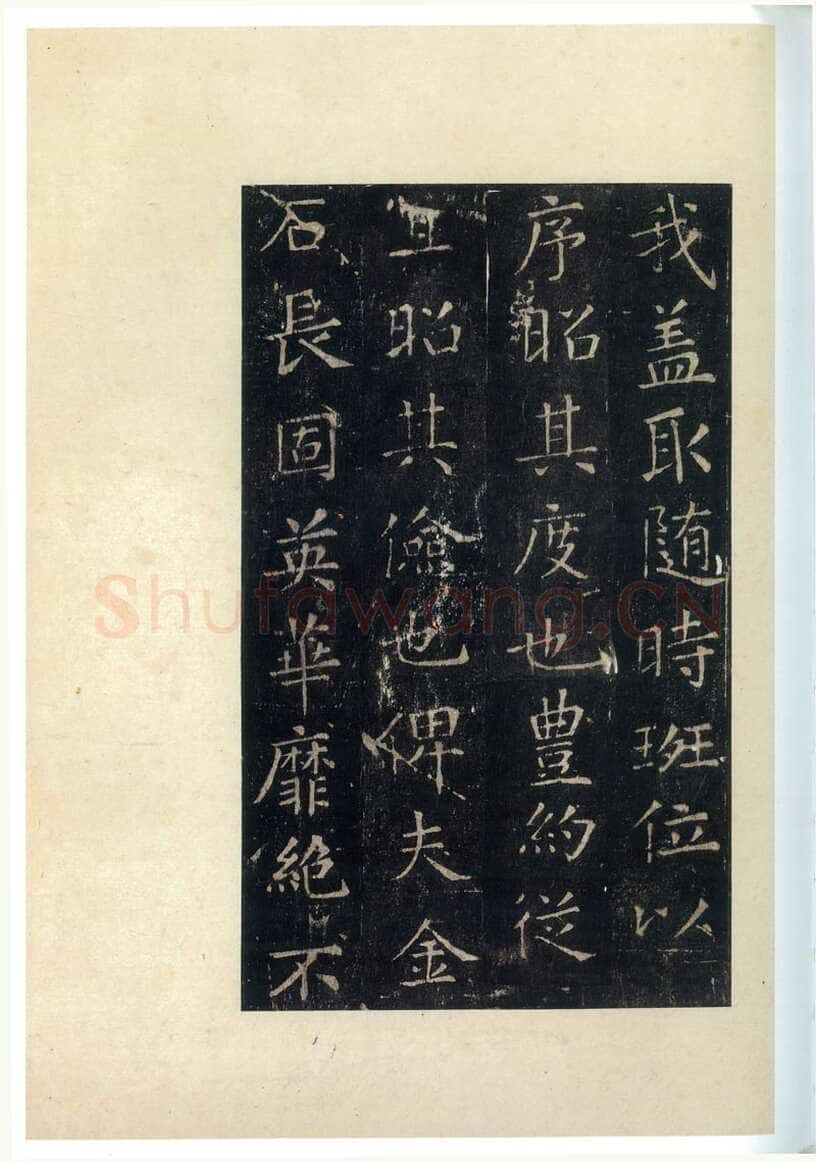 我盖取随時班位以
序昭其度也豊約從
宜昭其儉也俾夫金
石長固英華靡絶不
Shufawang.CN